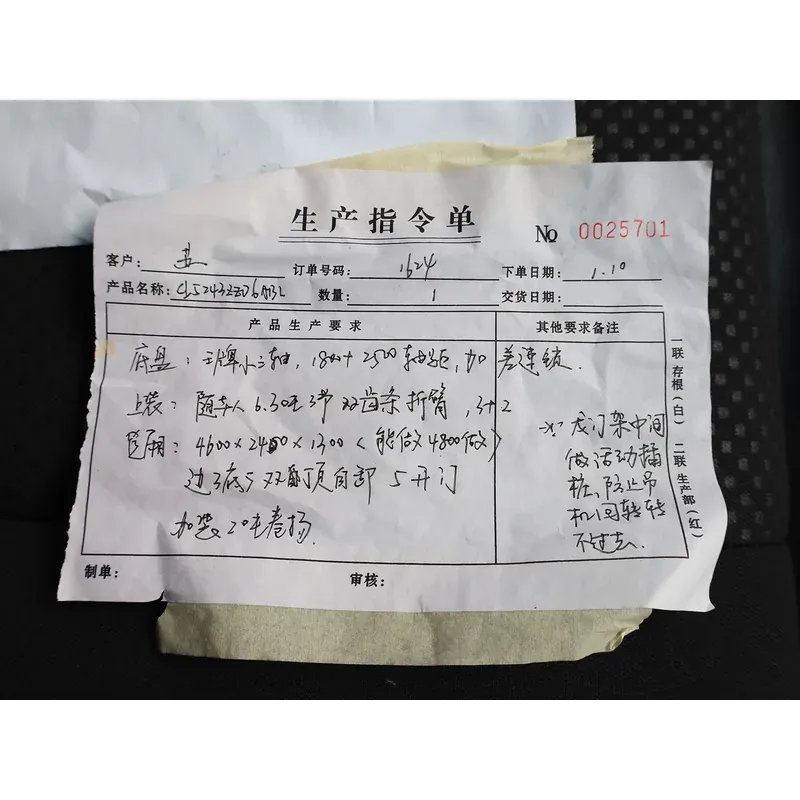 生产指令单
№ 0025701
客户:
订单号码: 1624
下单日期: 1.10
产品名称:
数量: 1
交货日期:
产品生产要求
其他要求备注
底盘: 王牌小三轴, 1800+2500轴距, 加差速锁.
上装: 随车人 6.30吨3节双齿条折臂, 3+2
货厢: 4600×2400×1300(能做4800做)
边3底5 双翻顶自卸 后开门
加装20吨卷扬.
龙门架中间
做活动插
桩,防止吊
机回转转
不过去.
制单:
审核:
一联存根(白) 二联生产部(红)